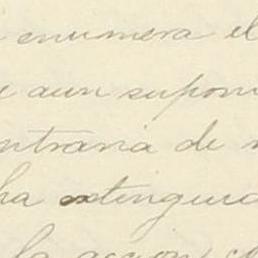 enumera el
aun supon
ntraria de
ha extinguid
la accion, co